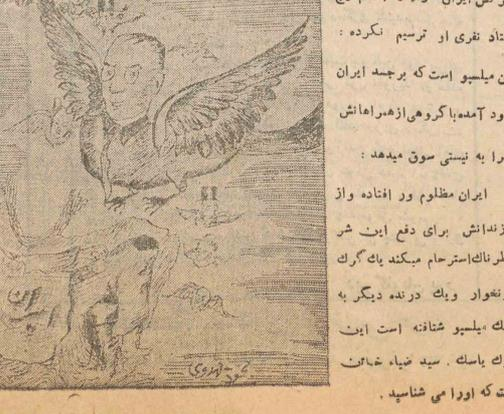 تاد نفری او ترسیم نکرده :
ن میلسپو است که برجسد ایران
ود آمده با گروهی از همراهانش
را به نیستی سوق میدهد :
ایران مظلوم ور افتاده واز
زندانش برای دفع این شر
طرناك استرحام میکند یك گرك
نخوار ویك درنده دیگر به
ك میلسپو شتافته است این
ك باسك . سید ضیاء خائن
ت که اورا می شناسید .